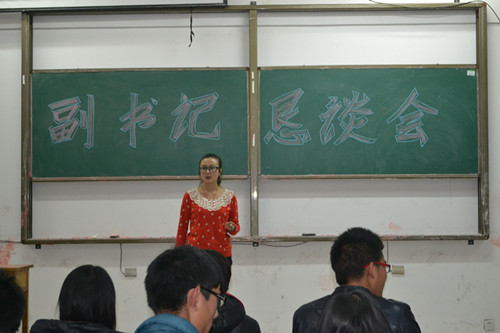 副书记恳谈会